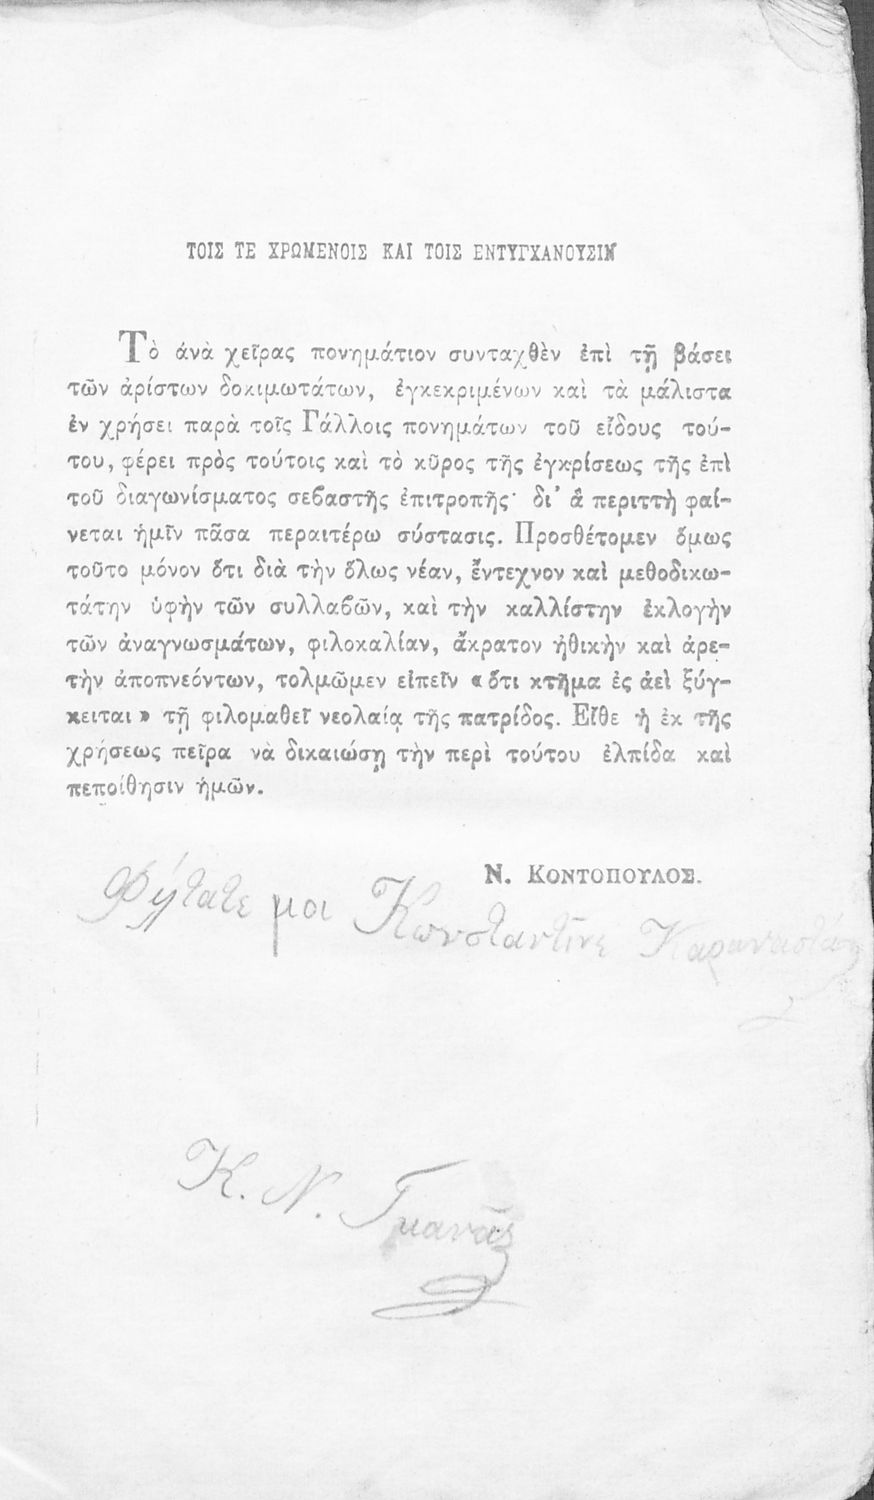 ΤΟΙΣ ΤΕ ΧΡΩΜΕΝΟΙΣ ΚΑΙ ΤΟΙΣ ΕΝΤΥΓΧΑΝΟΥΣΙΝ
Τὸ ἀνὰ χεῖρας πονημάτιον συνταχθὲν ἐπὶ τῇ βάσει
τῶν ἀρίστων δοκιμωτάτων, ἐγκεκριμένων καὶ τὰ μάλιστα
ἐν χρήσει παρὰ τοῖς Γάλλοις πονημάτων τοῦ εἴδους τού-
του, φέρει πρὸς τούτοις καὶ τὸ κῦρος τῆς ἐγκρίσεως τῆς ἐπὶ
τοῦ διαγωνίσματος σεβαστῆς ἐπιτροπῆς· δι' ἃ περιττὴ φαί-
νεται ἡμῖν πᾶσα περαιτέρω σύστασις. Προσθέτομεν ὅμως
τοῦτο μόνον ὅτι διὰ τὴν ὅλως νέαν, ἔντεχνον καὶ μεθοδικω-
τάτην ὑφὴν τῶν συλλαβῶν, καὶ τὴν καλλίστην ἐκλογὴν
τῶν ἀναγνωσμάτων, φιλοκαλίαν, ἄκρατον ἠθικὴν καὶ ἀρε-
τὴν ἀποπνεόντων, τολμῶμεν εἰπεῖν «ὅτι κτῆμα ἐς ἀεὶ ξύγ-
κειται» τῇ φιλομαθεῖ νεολαίᾳ τῆς πατρίδος. Εἴθε ἡ ἐκ τῆς
χρήσεως πεῖρα νὰ δικαιώσῃ τὴν περὶ τούτου ἐλπίδα καὶ
πεποίθησιν ἡμῶν.
Ν. ΚΟΝΤΟΠΟΥΛΟΣ.
Φίλτατε μοι Κωνσταντῖνε
Κ. Ν. Γκανᾶς